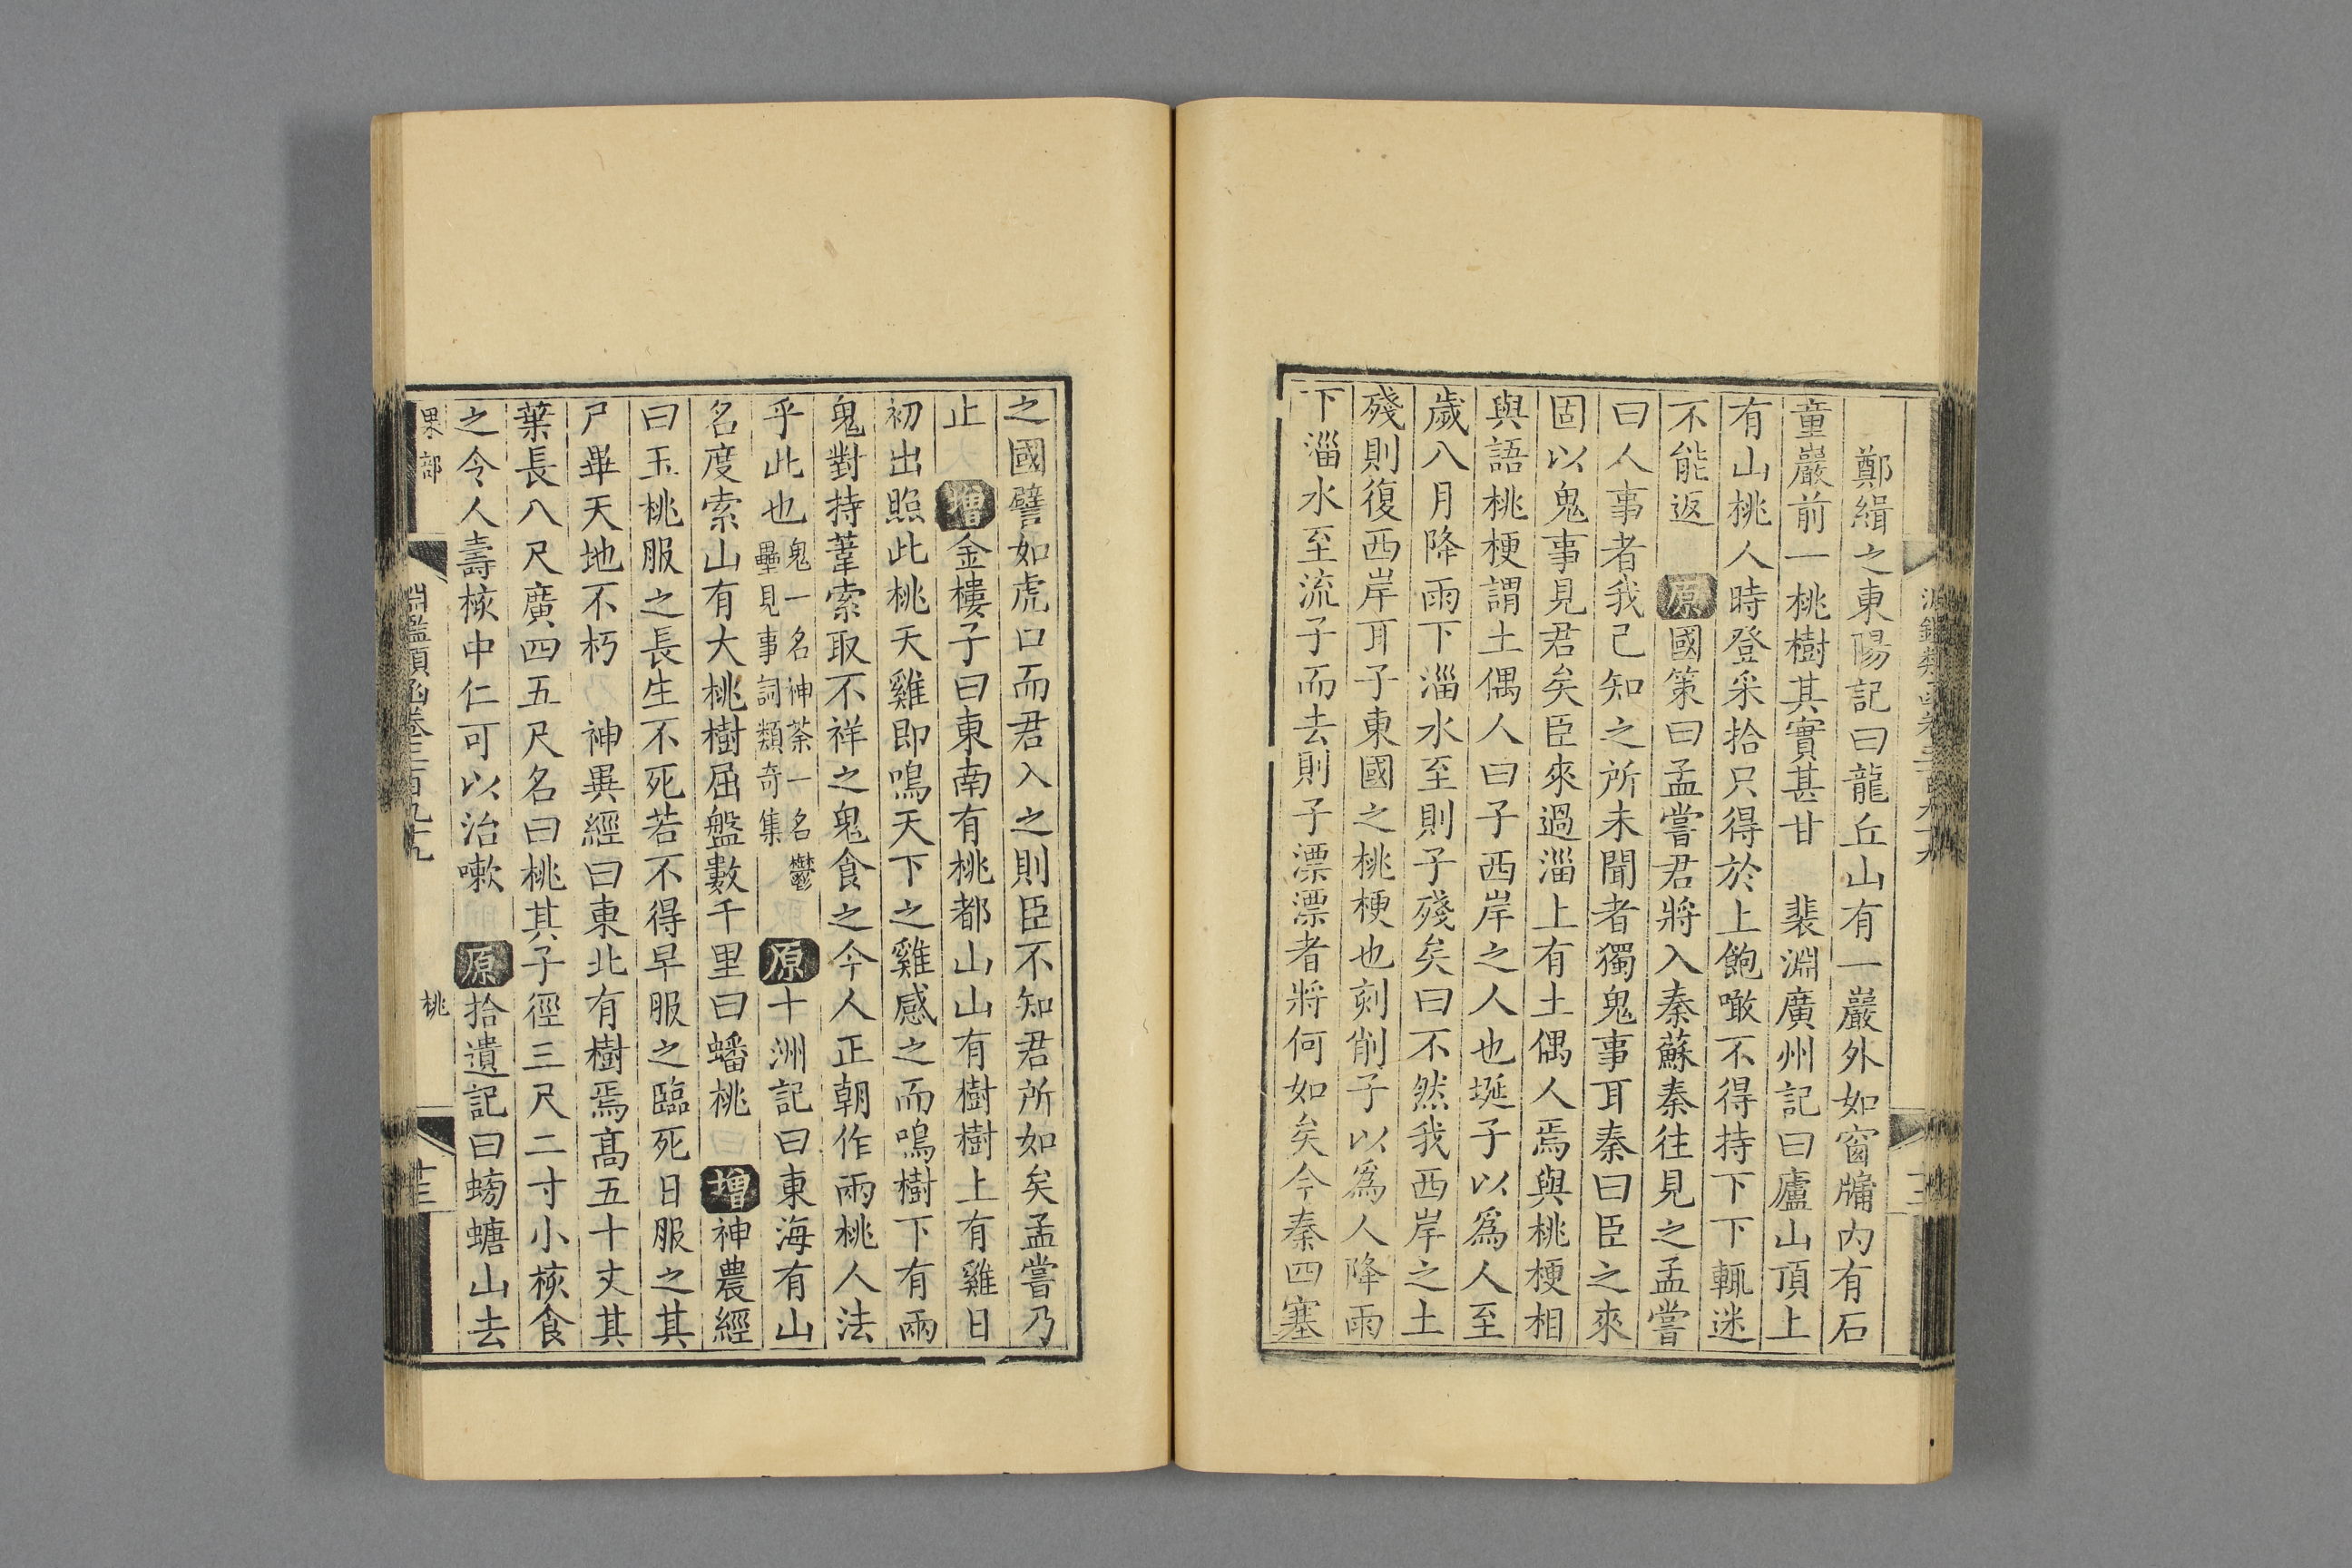 鄭緝之東陽記曰龍丘山有一巖外如窗牖內有石
童巖前一桃樹其實甚甘　裴淵廣州記曰廬山頂上
有山桃人時登采拾只得於上飽噉不得持下下輒迷
不能返　原國策曰孟嘗君將入秦蘇秦往見之孟嘗
曰人事者我已知之所未聞者獨鬼事耳秦曰臣之來
固以鬼事見君矣臣來過淄上有土偶人焉與桃梗相
與語桃梗謂土偶人曰子西岸之人也埏子以爲人至
歲八月降雨下淄水至則子殘矣曰不然我西岸之土
殘則復西岸耳子東國之桃梗也刻削子以爲人降雨
下淄水至流子而去則子漂漂者將何如矣今秦四塞
之國譬如虎口而君入之則臣不知君所如矣孟嘗乃
止　增金樓子曰東南有桃都山山有樹樹上有雞日
初出照此桃天雞即鳴天下之雞感之而鳴樹下有兩
鬼對持葦索取不祥之鬼食之今人正朝作兩桃人法
乎此也鬼一名神荼一名鬱壘見事詞類奇集　原十洲記曰東海有山
名度索山有大桃樹屈盤數千里曰蟠桃　增神農經
曰玉桃服之長生不死若不得早服之臨死日服之其
尸畢天地不朽　神異經曰東北有樹焉高五十丈其
葉長八尺廣四五尺名曰桃其子徑三尺二寸小核食
之令人壽核中仁可以治嗽　原拾遺記曰螃螗山去
果部
淵鑑類函卷三百九十九
桃